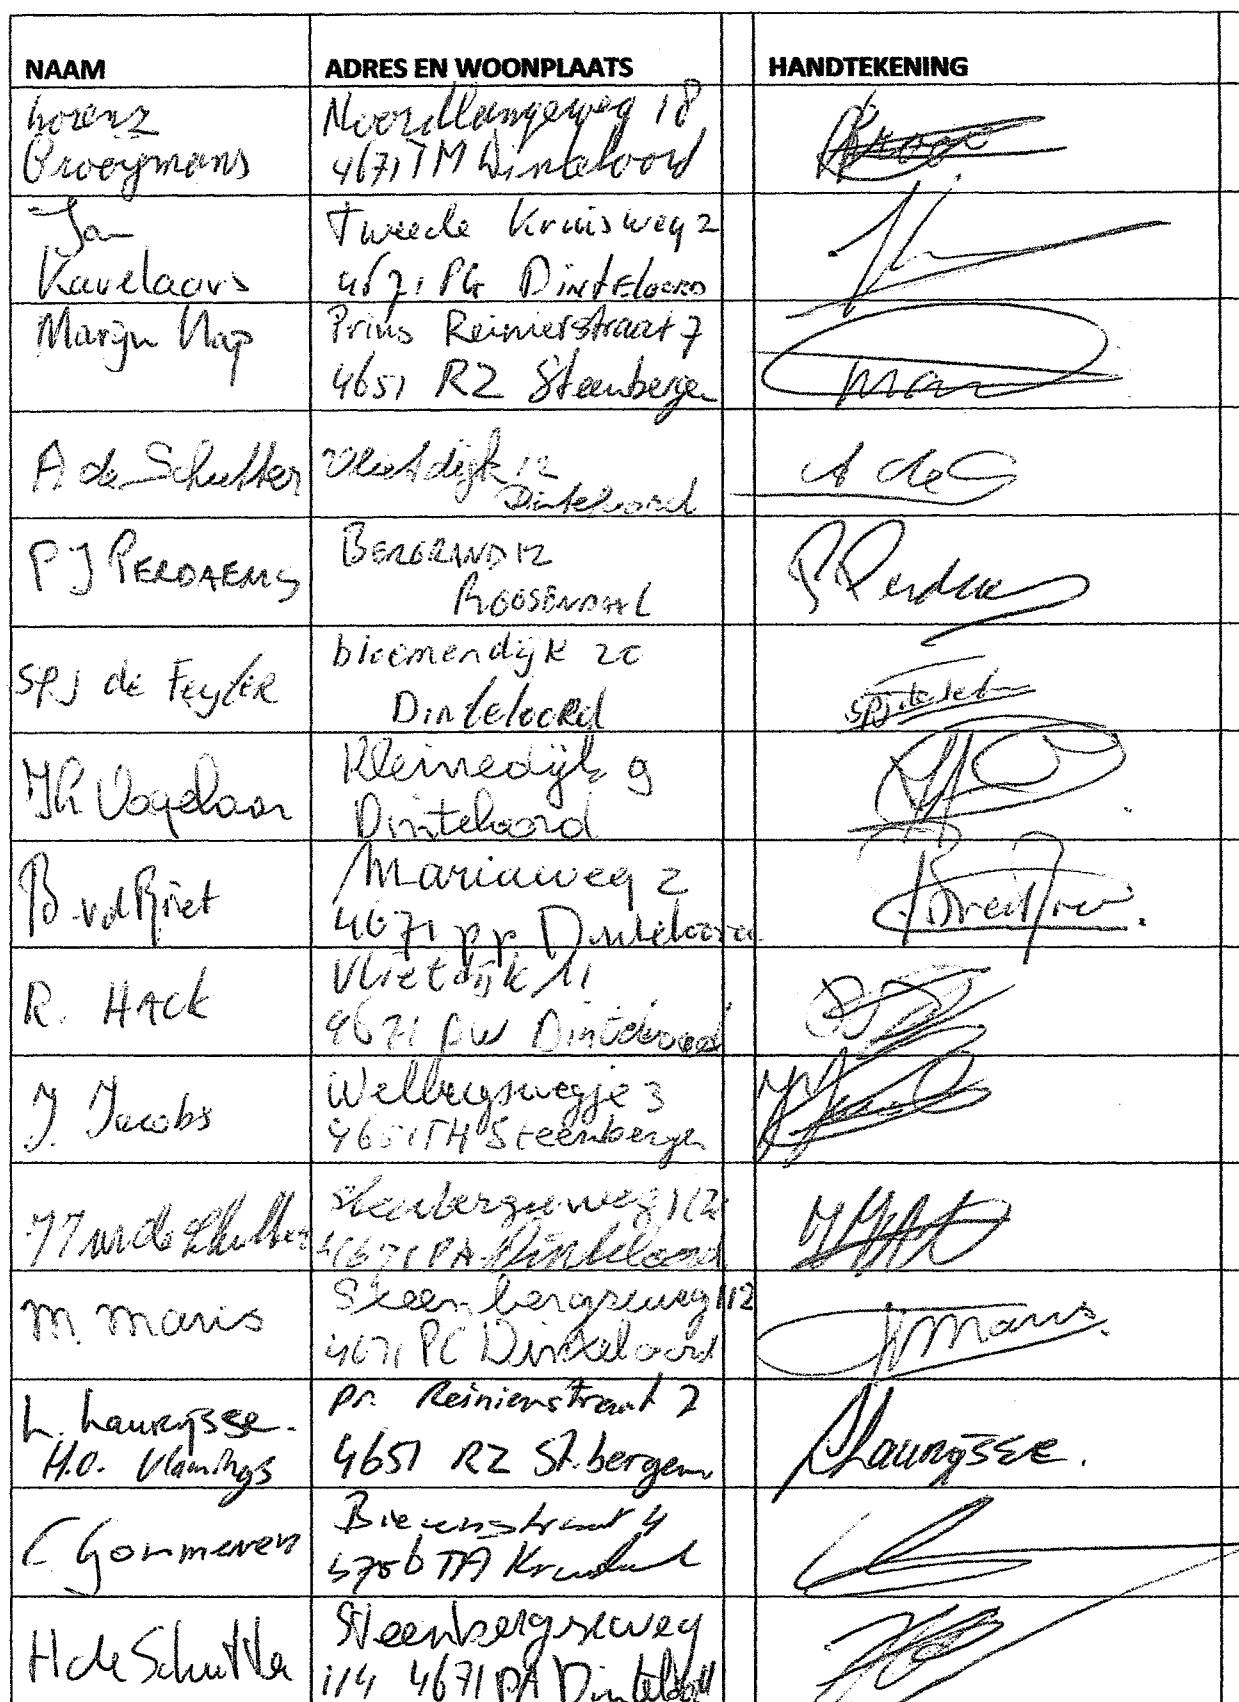 NAAM ADRES EN WOONPLAATS HANDTEKENING
Lorenz Noordlangeweg 18
Brooijmans 4671TM Dinteloord
Jan Tweede Kruisweg 2
Kavelaars 4671 PG Dinteloord
Marijn Nap Prins Reinierstraat 7
4651 RZ Steenbergen
A de Schutter Vlietdijk 12
Dinteloord
A de S
PJ PERDAEMS BERGRAND 12
ROOSENDAAL
P Perdaems
SPJ de Feyter bloemendijk 20
Dinteloord
Vogelaar Kleinedijk 9
Dinteloord
B. vd Riet Mariaweg 2
4671 pp Dinteloord
R. HACK Vlietdijk 11
4671 PW Dinteloord
J. Jacobs Welbergsewegje 3
4651TH Steenbergen
de Schutter Steenbergseweg 112
4671 PA Dinteloord
M. Maris Steenbergseweg 112
4671 PC Dinteloord
Maris.
L. Laurijsse. Pr. Reinierstraat 7
H.O. Vlamings 4651 RZ St.bergen
Laurijsse.
C Gommeren
4756 TA Kruisland
H de Schutter Steenbergseweg
114 4671 PA Dinteloord